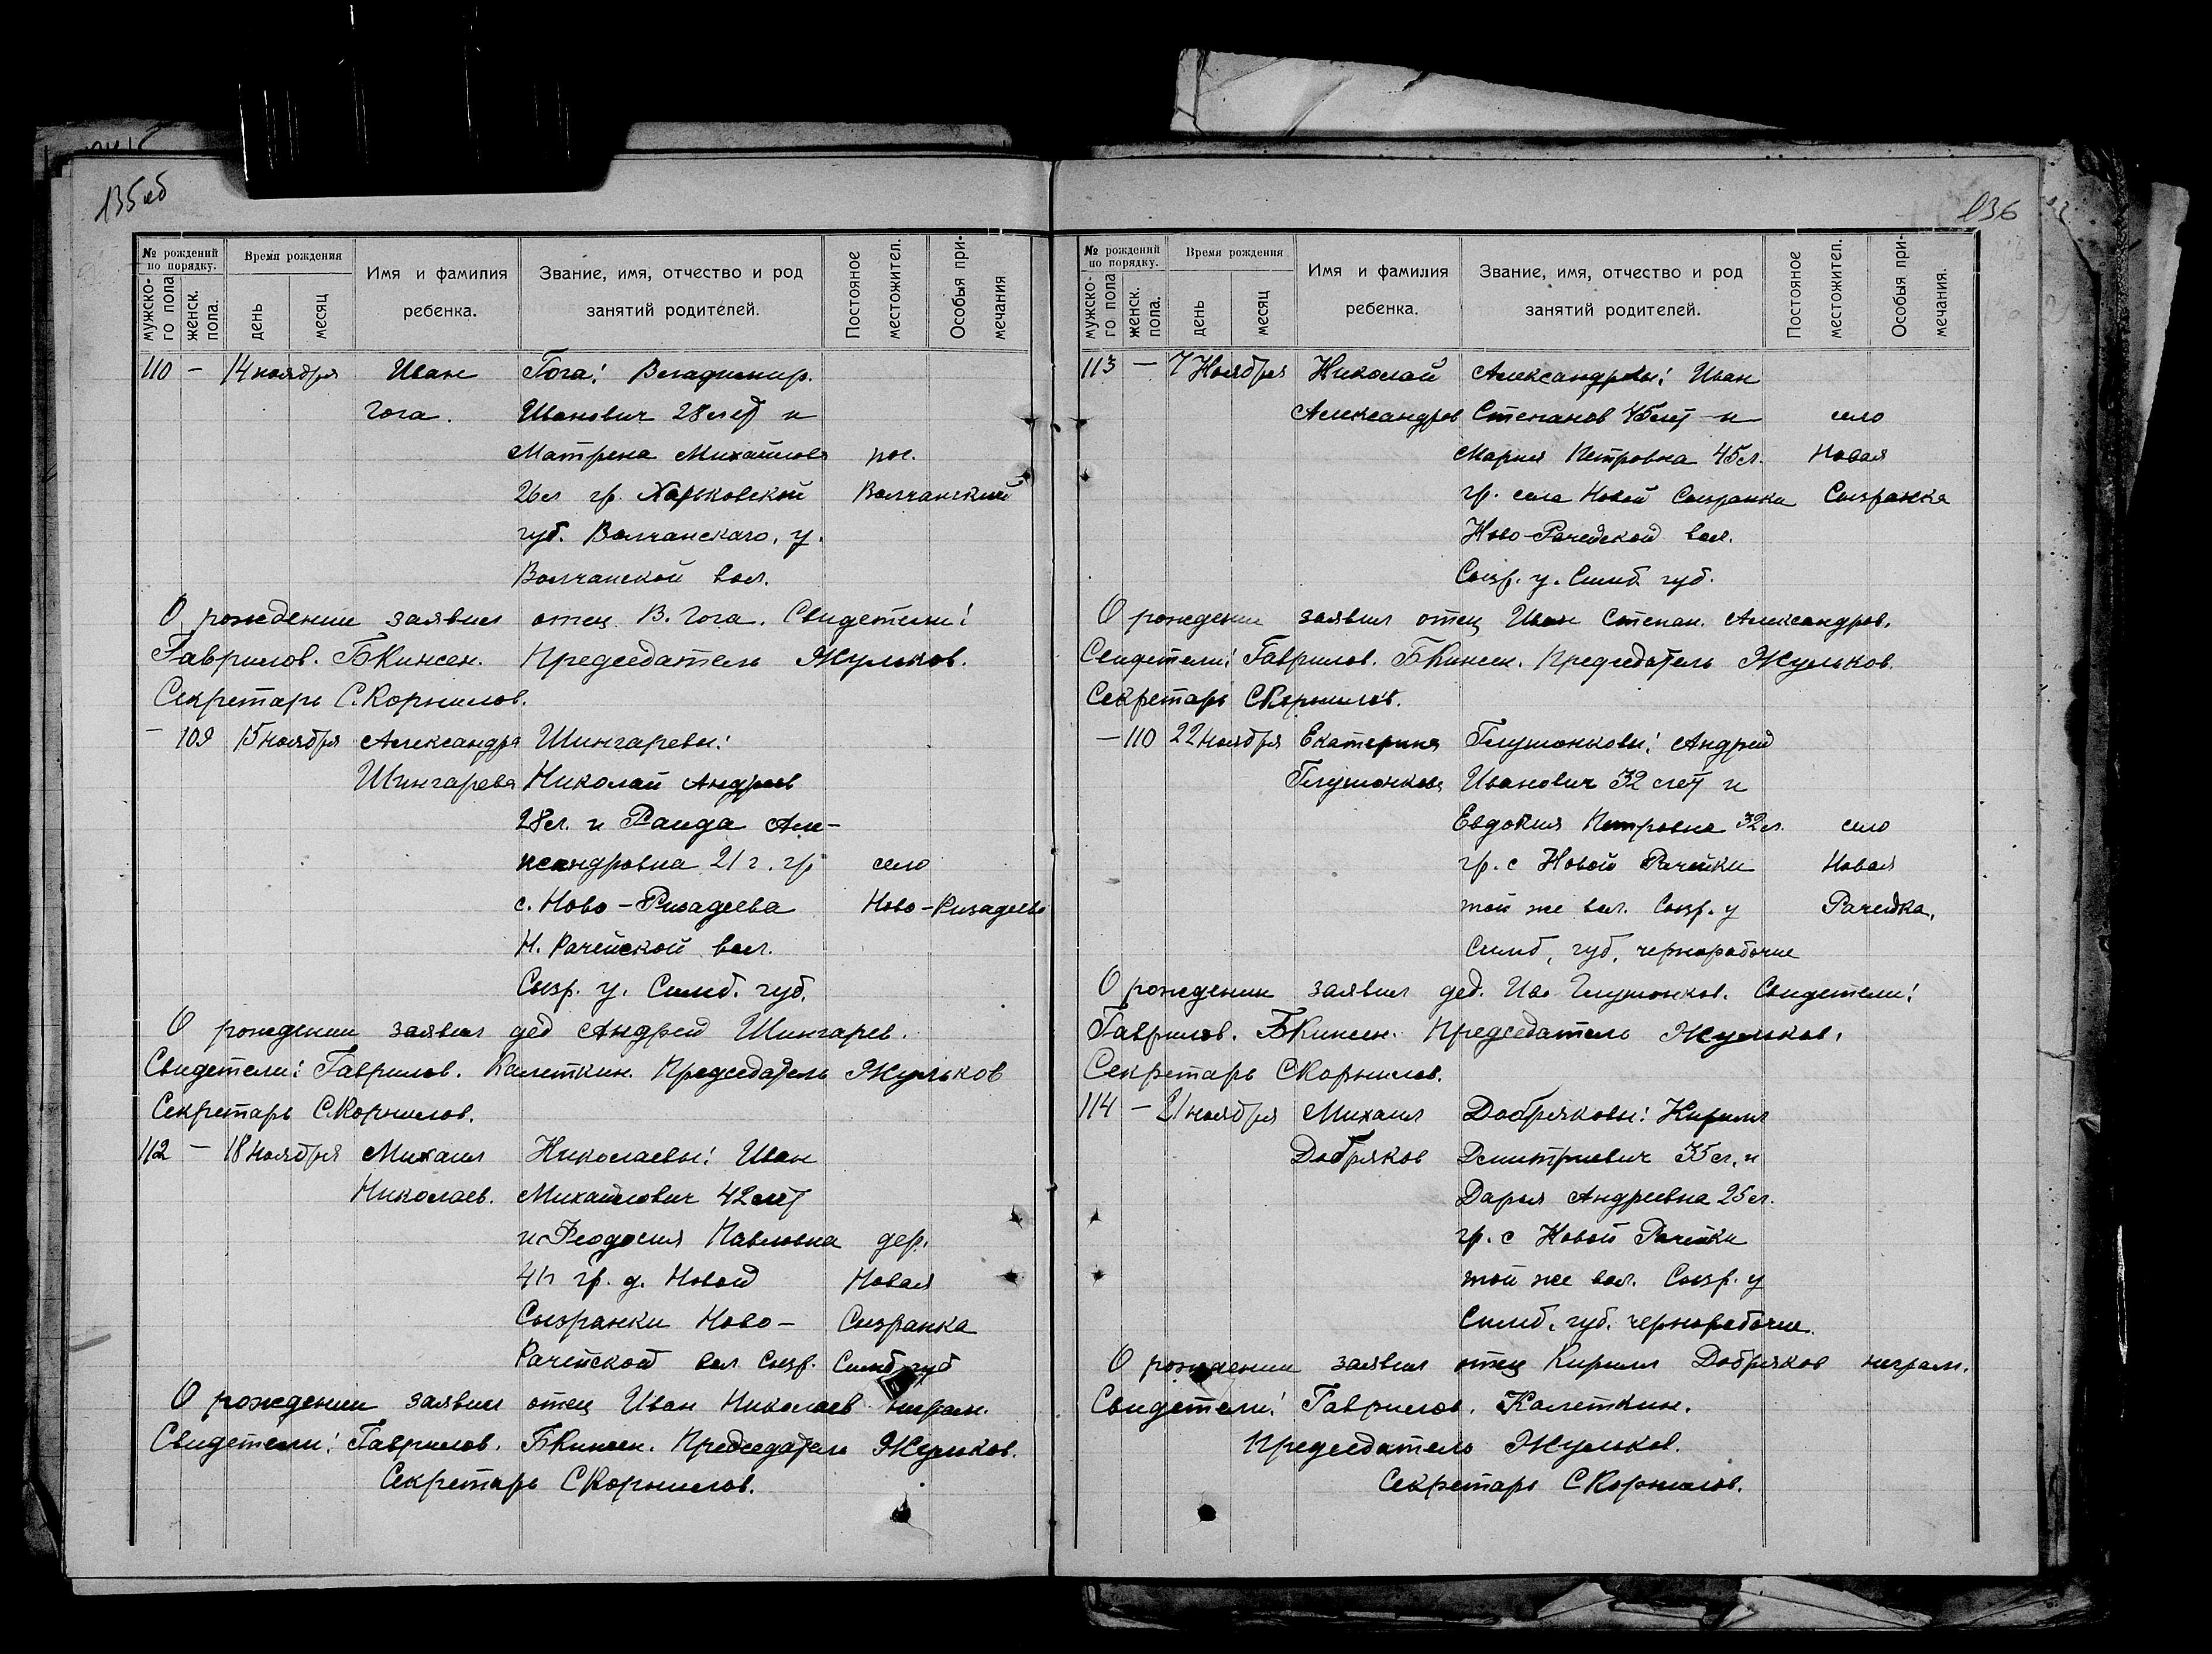 135об
№ рождений по порядку.
Время рождения
Имя и фамилия ребенка.
Звание, имя, отчество и род занятий родителей.
Постоянное местожител.
Особыя примечания
мужского пола
женск. пола.
день
месяц
110 — 14 ноября Иван Гога: Владимир.
Гога. Иванович 28 лет и
Матрена Михайлова пос.
26 л гр. Харьковской Волчанский
губ. Волчанскаго, у.
Волчанской вол.
О рождении заявил отец В. Гога. Свидетели:
Гаврилов. Председатель Жульков.
Секретарь С. Корнилов.
— 109 15 ноября Александра Шингаревы:
Шингарева Николай Андреев
28 л. и Раида Але-
ксандровна 21 г. гр село
с. Ново-Ризадеева Ново-Ризадеево
Н. Рачейской вол.
Сызр. у. Симб. губ.
О рождении заявил дед Андрей Шингарев.
Свидетели: Гаврилов. Калеткин. Председатель Жульков
Секретарь С Корнилов.
112 — 18 ноября Михаил Николаевы: Иван
Николаев. Михайлович 42 лет
и Феодосия Павловна дер.
41 г гр. д. Новой Новая
Сызранки Ново- Сызранка
Рачейской вол Сызр. Симб губ
О рождении заявил отец Иван Николаев неграм.
Свидетели: Гаврилов. Председатель Жульков.
Секретарь С Корнилов.
136
№ рождений по порядку.
Время рождения
Имя и фамилия ребенка.
Звание, имя, отчество и род занятий родителей.
Постоянное местожител.
Особыя примечания.
мужского пола
женск. пола.
день
месяц
113 — 7 Ноября Николай Александровы: Иван
Александров Степанов 45 лет и село
Мария Петровна 45 л. Новая
гр. села Новой Сызранки Сызранка
Ново-Рачейской вол.
Сызр. у. Симб. губ.
О рождении заявил отец Иван Степан. Александров.
Свидетели: Гаврилов. Председатель Жульков.
Секретарь С Корнилов.
— 110 22 ноября Екатерина Глушонковы: Андрей
Глушонкова Иванович 32 лет и
Евдокия Петровна 32 л. село
гр. с Новой Рачейки Новая
той же вол. Сызр. у Рачейка,
Симб, губ, чернорабочие
О рождении заявил дед. Ив. Глушонков. Свидетели:
Гаврилов. Председатель Жульков.
Секретарь С Корнилов.
114 — 21 ноября Михаил Добряковы: Кирилл
Добряков Дмитриевич 35 л. и
Дарья Андреевна 25 л.
гр. с Новой Рачейки
той же вол. Сызр. у
Симб. губ. чернорабочие.
О рождении заявил отец Кирилл Добряков неграм.
Свидетели: Гаврилов. Калеткин.
Председатель Жульков.
Секретарь С Корнилов.